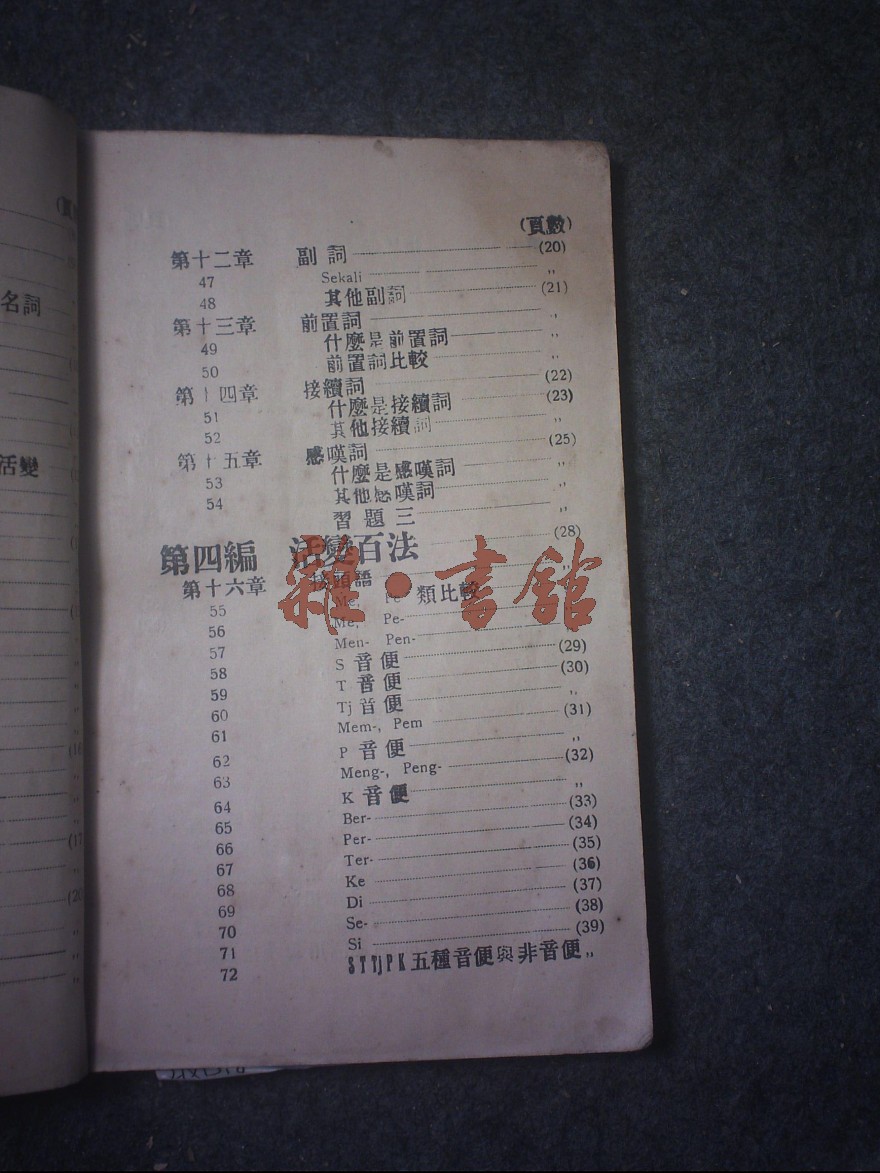 (頁數)
第十二章 副詞 (20)
47 Sekali „
48 其他副詞 (21)
第十三章 前置詞 „
49 什麼是前置詞 „
50 前置詞比較 „
第十四章 接續詞 (22)
51 什麼是接續詞 (23)
52 其他接續詞 „
第十五章 感嘆詞 (25)
53 什麼是感嘆詞 „
54 其他感嘆詞 „
習題三 „
第四編 活變百法 (28)
第十六章 接頭語 „
55 Me, Pe 類比較
56 Me, Pe-
57 Men- Pen-
58 S 音便 (29)
59 T 音便 (30)
60 Tj 音便 „
61 Mem-, Pem (31)
62 P 音便 „
63 Meng-, Peng- (32)
64 K 音便 „
65 Ber- (33)
66 Per- (34)
67 Ter- (35)
68 Ke (36)
69 Di (37)
70 Se- (38)
71 Si (39)
72 S T Tj P K 五種音便與非音便 „
名詞
活變
雜·書館